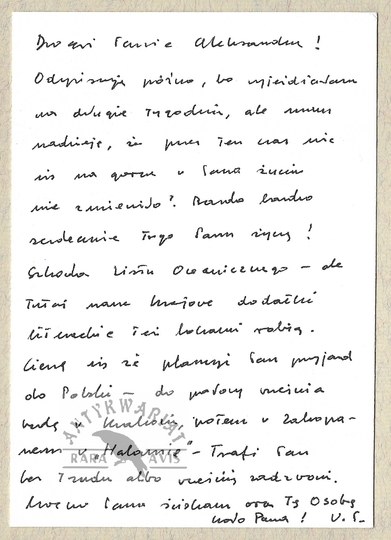 Drogi Panie Aleksandrze!
Odpisuję późno, bo wyjeżdżałam
na długie tygodnie, ale mam
nadzieję, że przez ten czas nic
się na gorsze w Pana życiu
nie zmieniło. Bardzo bardzo
serdecznie tego Panu życzę!
Szkoda Listu Oceanicznego – ale
tutaj nasze krajowe dodatki
literackie też bokami robią.
Cieszę się że planuje Pan przyjazd
do Polski – do połowy września
będę w Krakowie, potem w Zakopa-
nem w „Halamie” – Trafi Pan
bez trudu albo wcześniej zadzwoni.
Mocno Pana ściskam oraz Tę Osobę
koło Pana! W. S.
ANTYKWARIAT
RARA AVIS